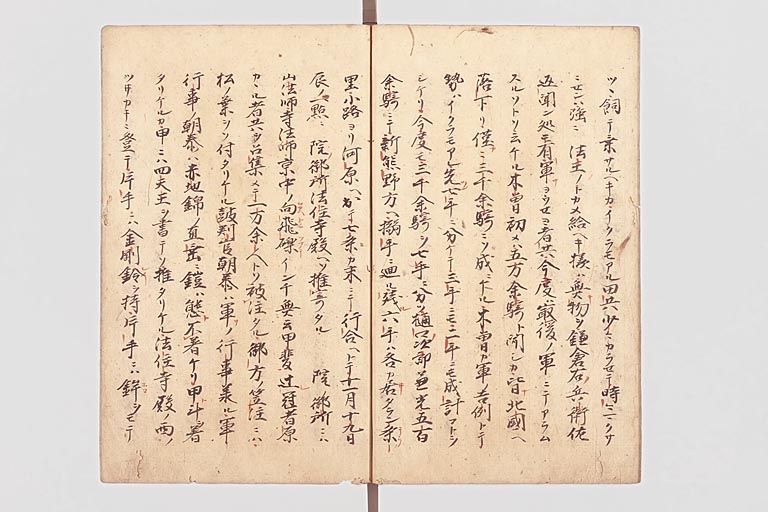 ツヽ飼テ京サルヘキカイクラモアル田共少々カラセテ時ニクサ
ニセンハ強ニ法主ノトカメ給ヘキ様ハ奥物シ鎌倉右兵衛佐
返聞ン処モ有軍ヨシセヨ者共今度ハ最後ノ軍ニテアラム
スルソトソ云ケル木曽初メハ五万余騎ト聞シカ皆北國ヘ
落下リ僅ニ三千余騎ニソ成ニケル木曽カ軍ノ吉例トテ
勢ハイクラモアレ先七手ニ分ケテ三手ニモ二手ニモ成計コトシ
シケリ今度モ三千余騎ヲ七手ニ分ツ樋口次郎兼光五百
余騎ニテ新熊野方ヘ搦手ニ廻ル残六手ハ各カ居タル条
里小路ヨリ河原ヘ出テ七条カ末ニテ行合ヘトテ十一月十九日
辰ノ一點ニ院御所法住寺殿ヘソ推寄タル院御所ニハ
山法師寺法師京中ノ向飛礫インチ奥云甲斐ナキ辻冠者原
カヽル者共ヲ召集メテ一万余人ヘトソ被注タル御方ノ笠注ニハ
松ノ葉ヲソ付タリケル鼓判官朝泰ハ軍ノ行事義ル軍
行事ノ朝泰ハ赤地錦ノ直垂ニ鎧ハ態不着ケリ甲斗ソ着
タリケルカ甲ニハ四天王ヲ書テソ推タリケル法住寺殿ノ西ノ
ツイカキニ登テ片手ニハ金剛鈴ヲ持片手ニハ鉾ヲモテ